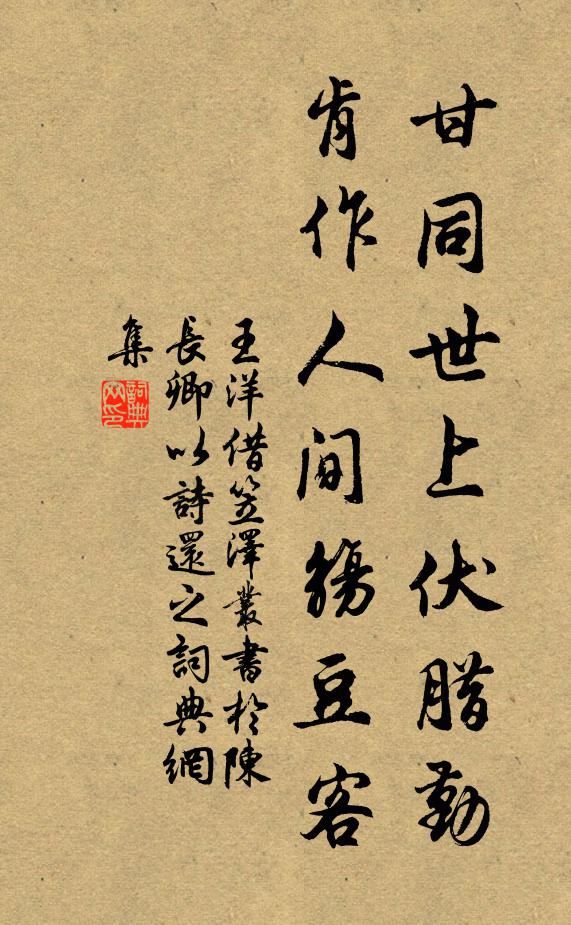 甘同世上伏腊勤
肯作人間觴豆客
王洋借笠澤叢書於陳
長卿以詩還之詞典網
集
詞典
网印